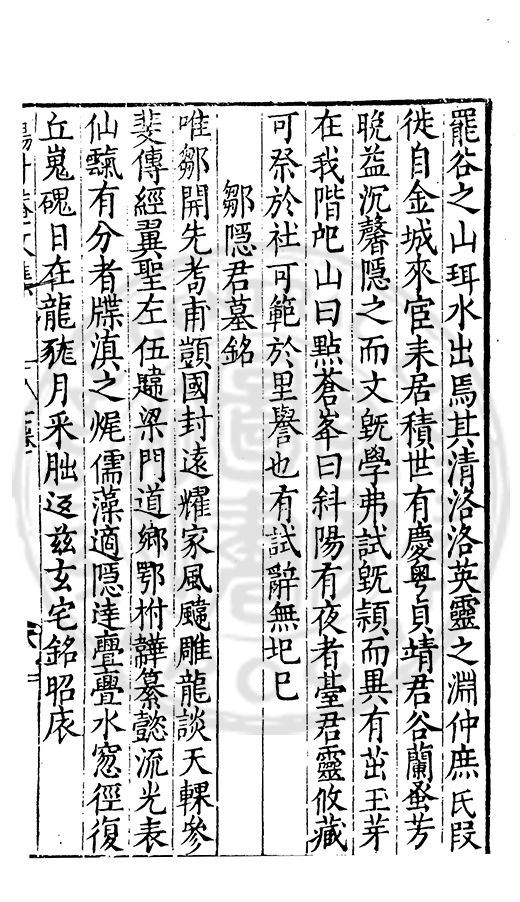 罷谷之山珥水出焉其清洛洛英靈之淵仲庶氏叚
徙自金城來宦耒居積世有慶粵貞靖君谷蘭蚤芳
晚益沉馨隱之而文旣學弗試旣頴而異有茁玉芽
在我階戺山曰點蒼峯曰斜陽有夜者臺君靈攸藏
可祭於社可範於里譽也有試辭無圯巳
鄒隱君墓銘
唯鄒開先蒍甫顗國封遠耀家風飈雕龍談天輠參
斐傳經翼聖左伍韙梁門道鄉鄂柎韡纂懿流光表
仙甿有分者牒滇之煋儒藻適隱達亹亹水窓徑復
丘嵬磈日在龍䝈月釆朏迈兹玄宅銘昭扆